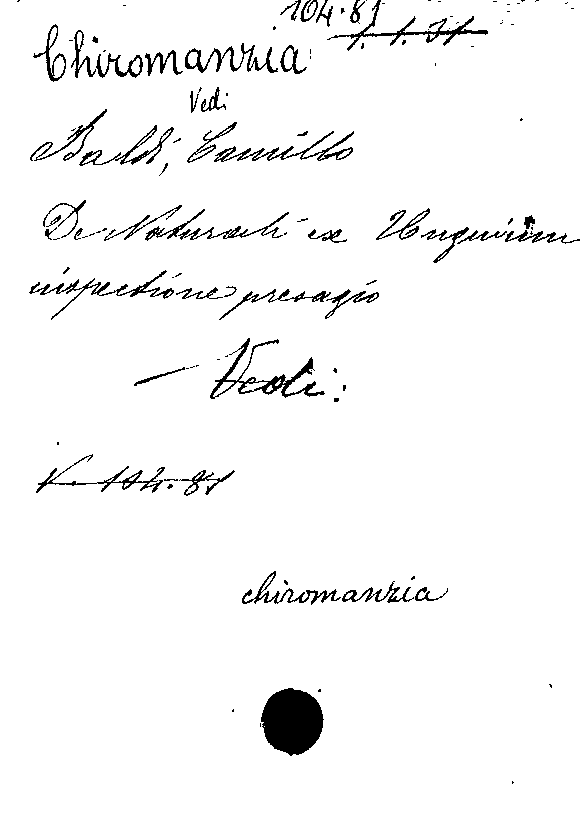 104.81
1.1.31
Chiromanzia
Vedi
Baldi, Camillo
De Naturali ex Unguium
inspectione presagio
— Vedi:
V. 104.81
chiromanzia